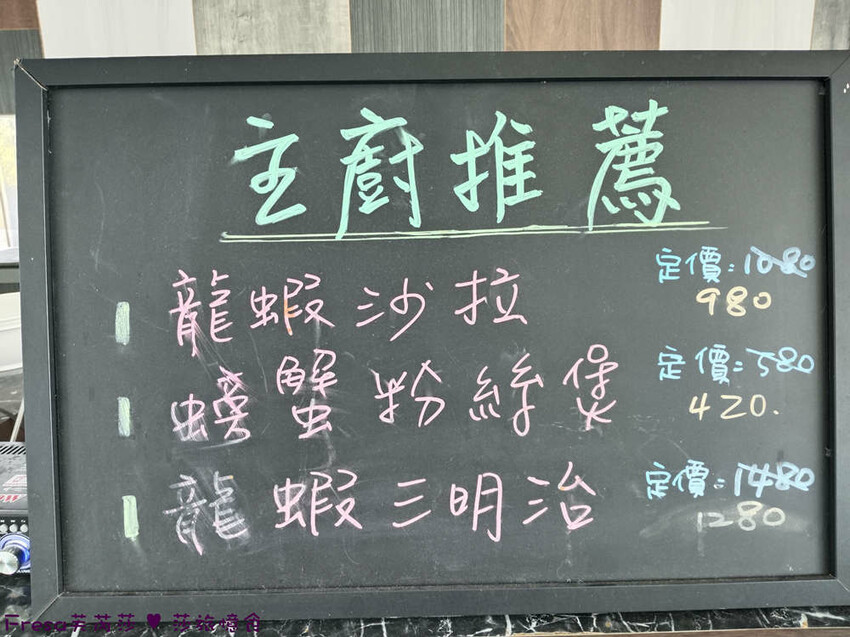 主廚推薦
龍蝦沙拉 定價:1080
980
螃蟹粉絲煲 定價:580
420.
龍蝦三明治 定價:1480
1280
Fresa芙芮莎♥莎旅憶食